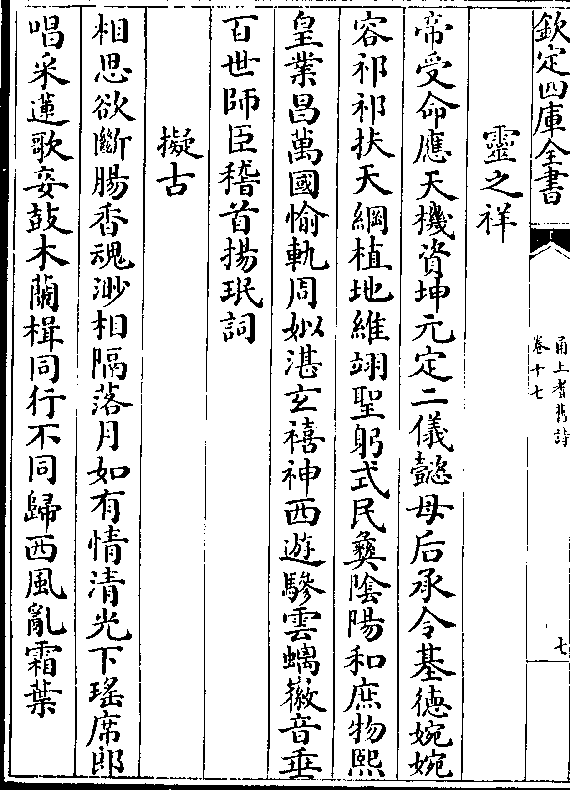 欽定四庫全書
甬上耆舊詩
卷十七
七
靈之祥
帝受命應天機資坤元定二儀懿母后承令基德婉婉
容祁祁扶天綱植地維翊聖躬式民彝陰陽和庶物熙
皇業昌萬國愉軌周姒湛玄禧神西遊驂雲螭徽音垂
百世師臣稽首揚珉詞
擬古
相思欲斷腸香魂渺相隔落月如有情清光下瑤席郎
唱采蓮歌妾鼓木蘭楫同行不同歸西風亂霜葉